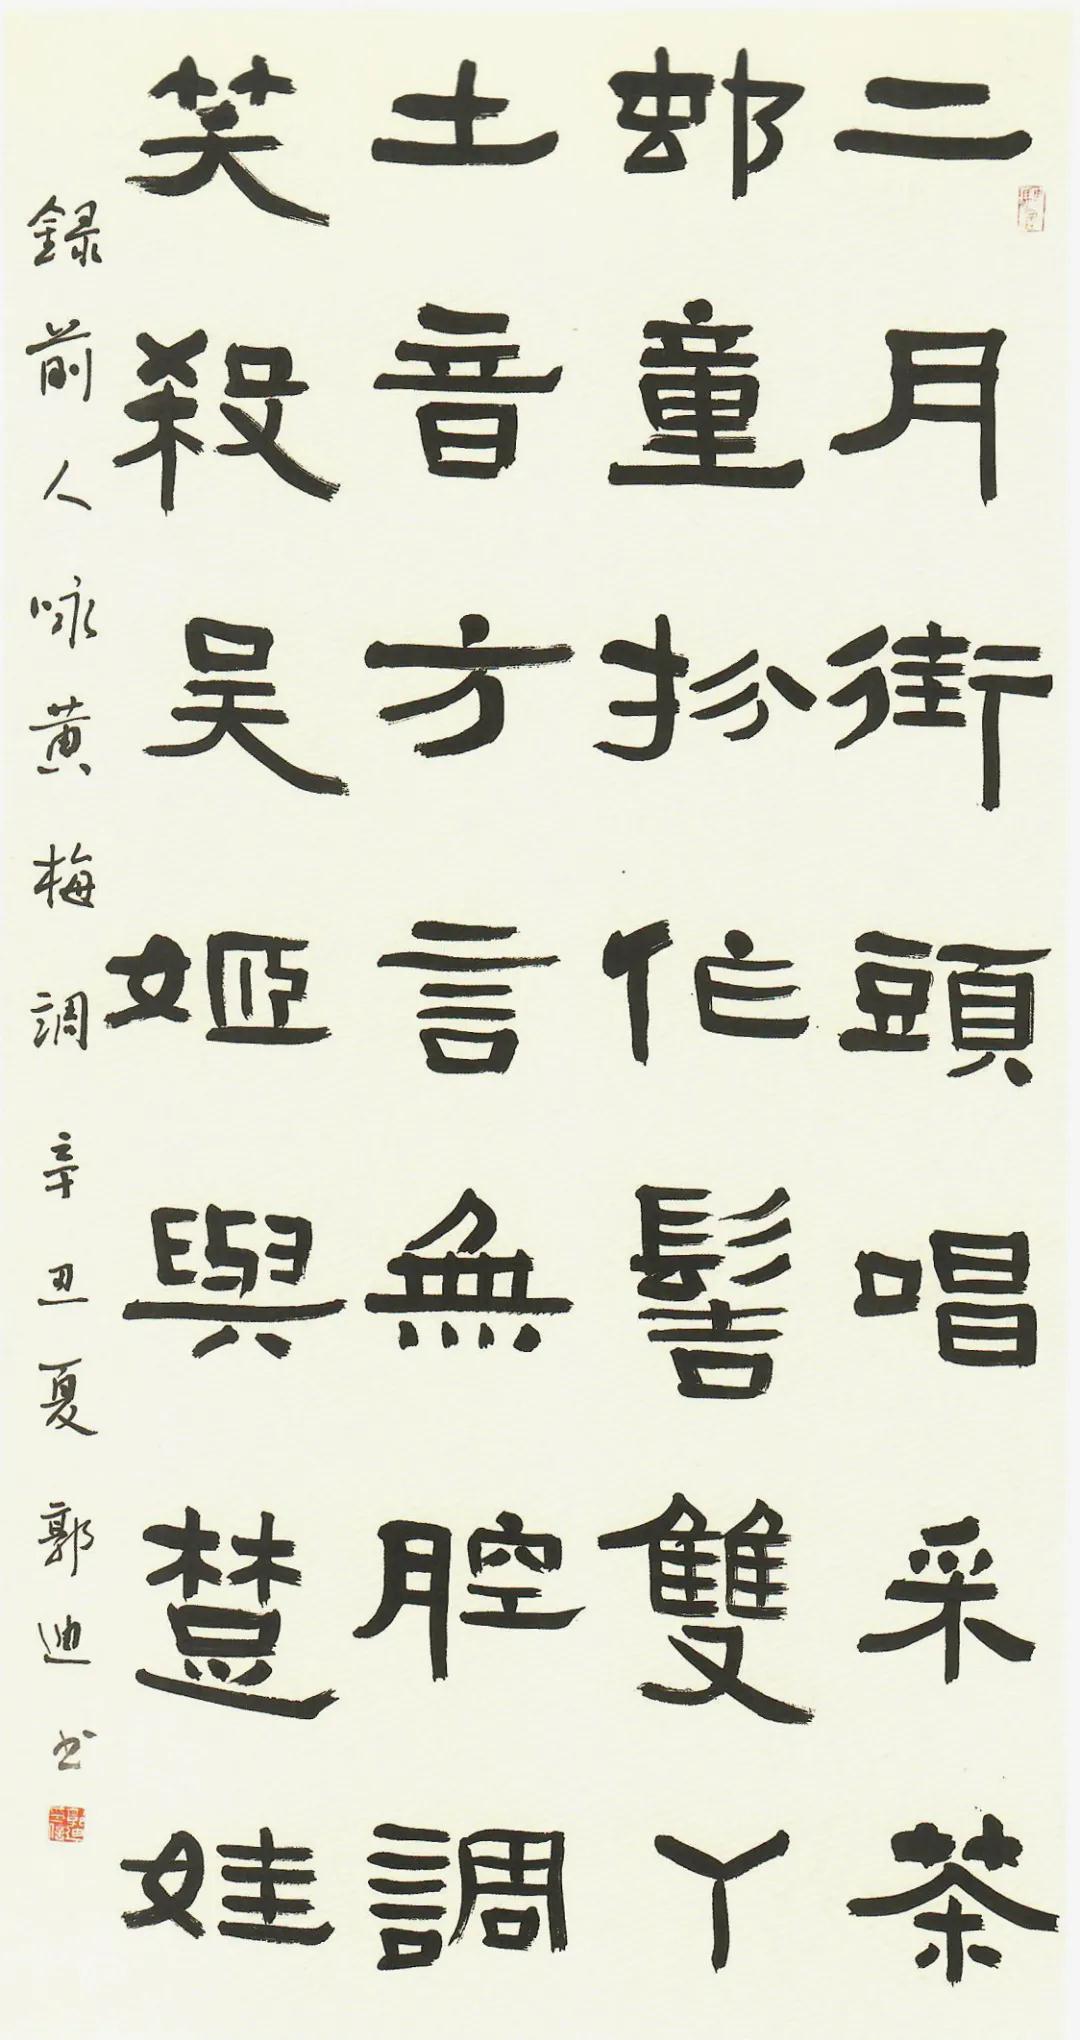 二月街頭唱采茶
邨童扮作髻雙丫
土音方言無腔調
笑殺吴姬與楚娃
録前人咏黄梅調辛丑夏郭迪书